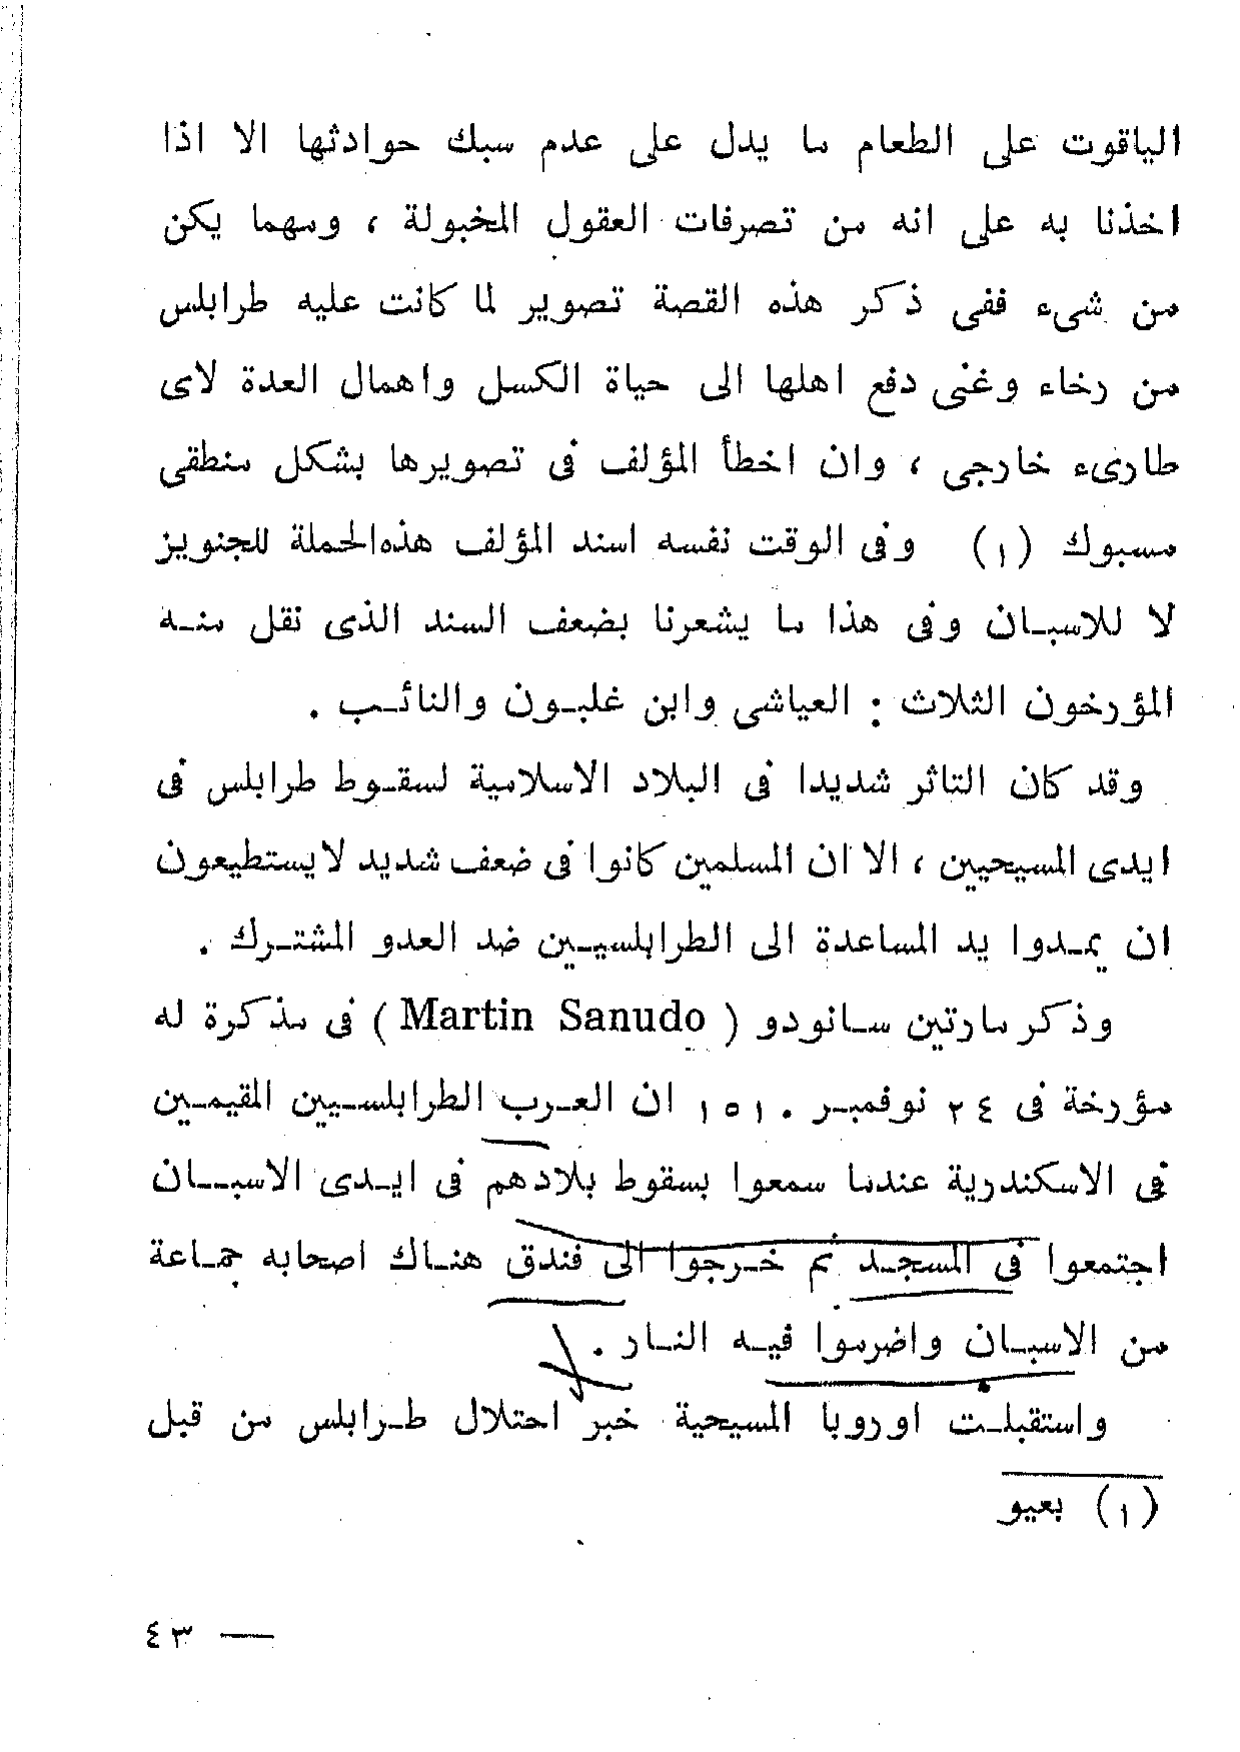 الياقوت على الطعام ما يدل على عدم سبك حوادثها الا اذا
اخذنا به على انه من تصرفات العقول المخبولة ، ومهما يكن
من شىء ففى ذكر هذه القصة تصوير لما كانت عليه طرابلس
من رخاء وغنى دفع اهلها الى حياة الكسل واهمال العدة لاى
طارىء خارجى ، وان اخطأ المؤلف فى تصويرها بشكل منطقى
مسبوك (١) وفى الوقت نفسه اسند المؤلف هذه الحملة للجنويز
لا للاسبـان وفى هذا ما يشعرنا بضعف السند الذى نقل منـه
المؤرخون الثلاث : العياشى وابن غلبـون والنائـب .
وقد كان التاثر شديدا فى البلاد الاسلامية لسقـوط طرابلس فى
ايدى المسيحيين ، الا ان المسلمين كانوا فى ضعف شديد لايستطيعون
ان يمـدوا يد المساعدة الى الطرابلسيـين ضد العدو المشتـرك .
وذكر مارتين سـانودو ( Martin Sanudo ) فى مذكرة له
مؤرخة فى ٢٤ نوفمبـر ١٥١٠ ان العـرب الطرابلسـيين المقيمـين
فى الاسكندرية عندما سمعوا بسقوط بلادهم فى ايـدى الاسبــان
اجتمعوا فى المسجـد ثم خـرجوا الى فندق هنـاك اصحابه جمـاعة
من الاسبـان واضرموا فيـه النـار .
واستقبلـت اوروبا المسيحية خبر احتلال طـرابلس من قبل
(١) بعيو
— ٤٣